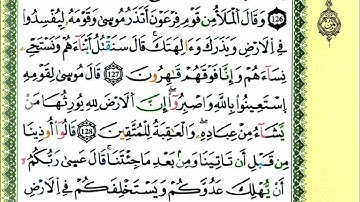 (126) وَقَالَ ٱلْمَلَأُ مِن قَوْمِ فِرْعَوْنَ أَتَذَرُ مُوسَىٰ وَقَوْمَهُۥ لِيُفْسِدُوا۟
فِى ٱلْأَرْضِ وَيَذَرَكَ وَءَالِهَتَكَ قَالَ سَنَقْتُلُ أَبْنَآءَهُمْ وَنَسْتَحْىِۦ
نِسَآءَهُمْ وَإِنَّا فَوْقَهُمْ قَٰهِرُونَ (127) قَالَ مُوسَىٰ لِقَوْمِهِ
ٱسْتَعِينُوا۟ بِٱللَّهِ وَٱصْبِرُوٓا۟ إِنَّ ٱلْأَرْضَ لِلَّهِ يُورِثُهَا مَن
يَشَآءُ مِنْ عِبَادِهِۦ وَٱلْعَٰقِبَةُ لِلْمُتَّقِينَ (128) قَالُوٓا۟ أُوذِينَا
مِن قَبْلِ أَن تَاتِيَنَا وَمِنۢ بَعْدِ مَا جِئْتَنَا قَالَ عَسَىٰ رَبُّكُمُۥٓ
أَن يُهْلِكَ عَدُوَّكُمْ وَيَسْتَخْلِفَكُمْ فِى ٱلْأَرْضِ